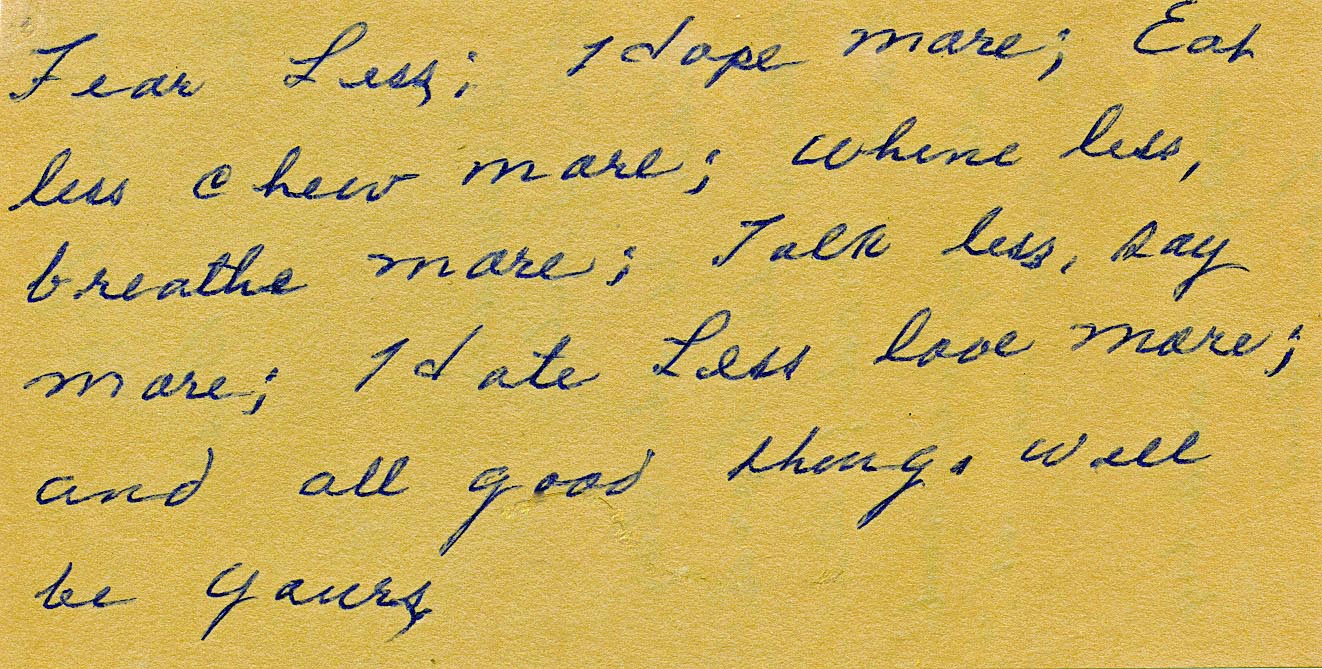 Fear Less; Hope more; Eat
less chew more; whine less,
breathe more; Talk less, say
more; Hate Less love more;
and all good things will
be yours